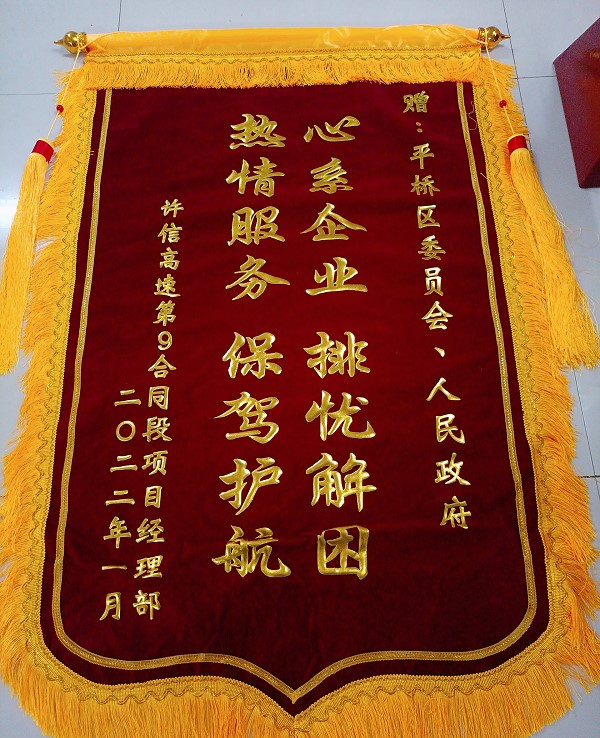 赠：平桥区委员会、人民政府
心系企业 排忧解困
热情服务 保驾护航
许信高速第9合同段项目经理部
二〇二二年一月